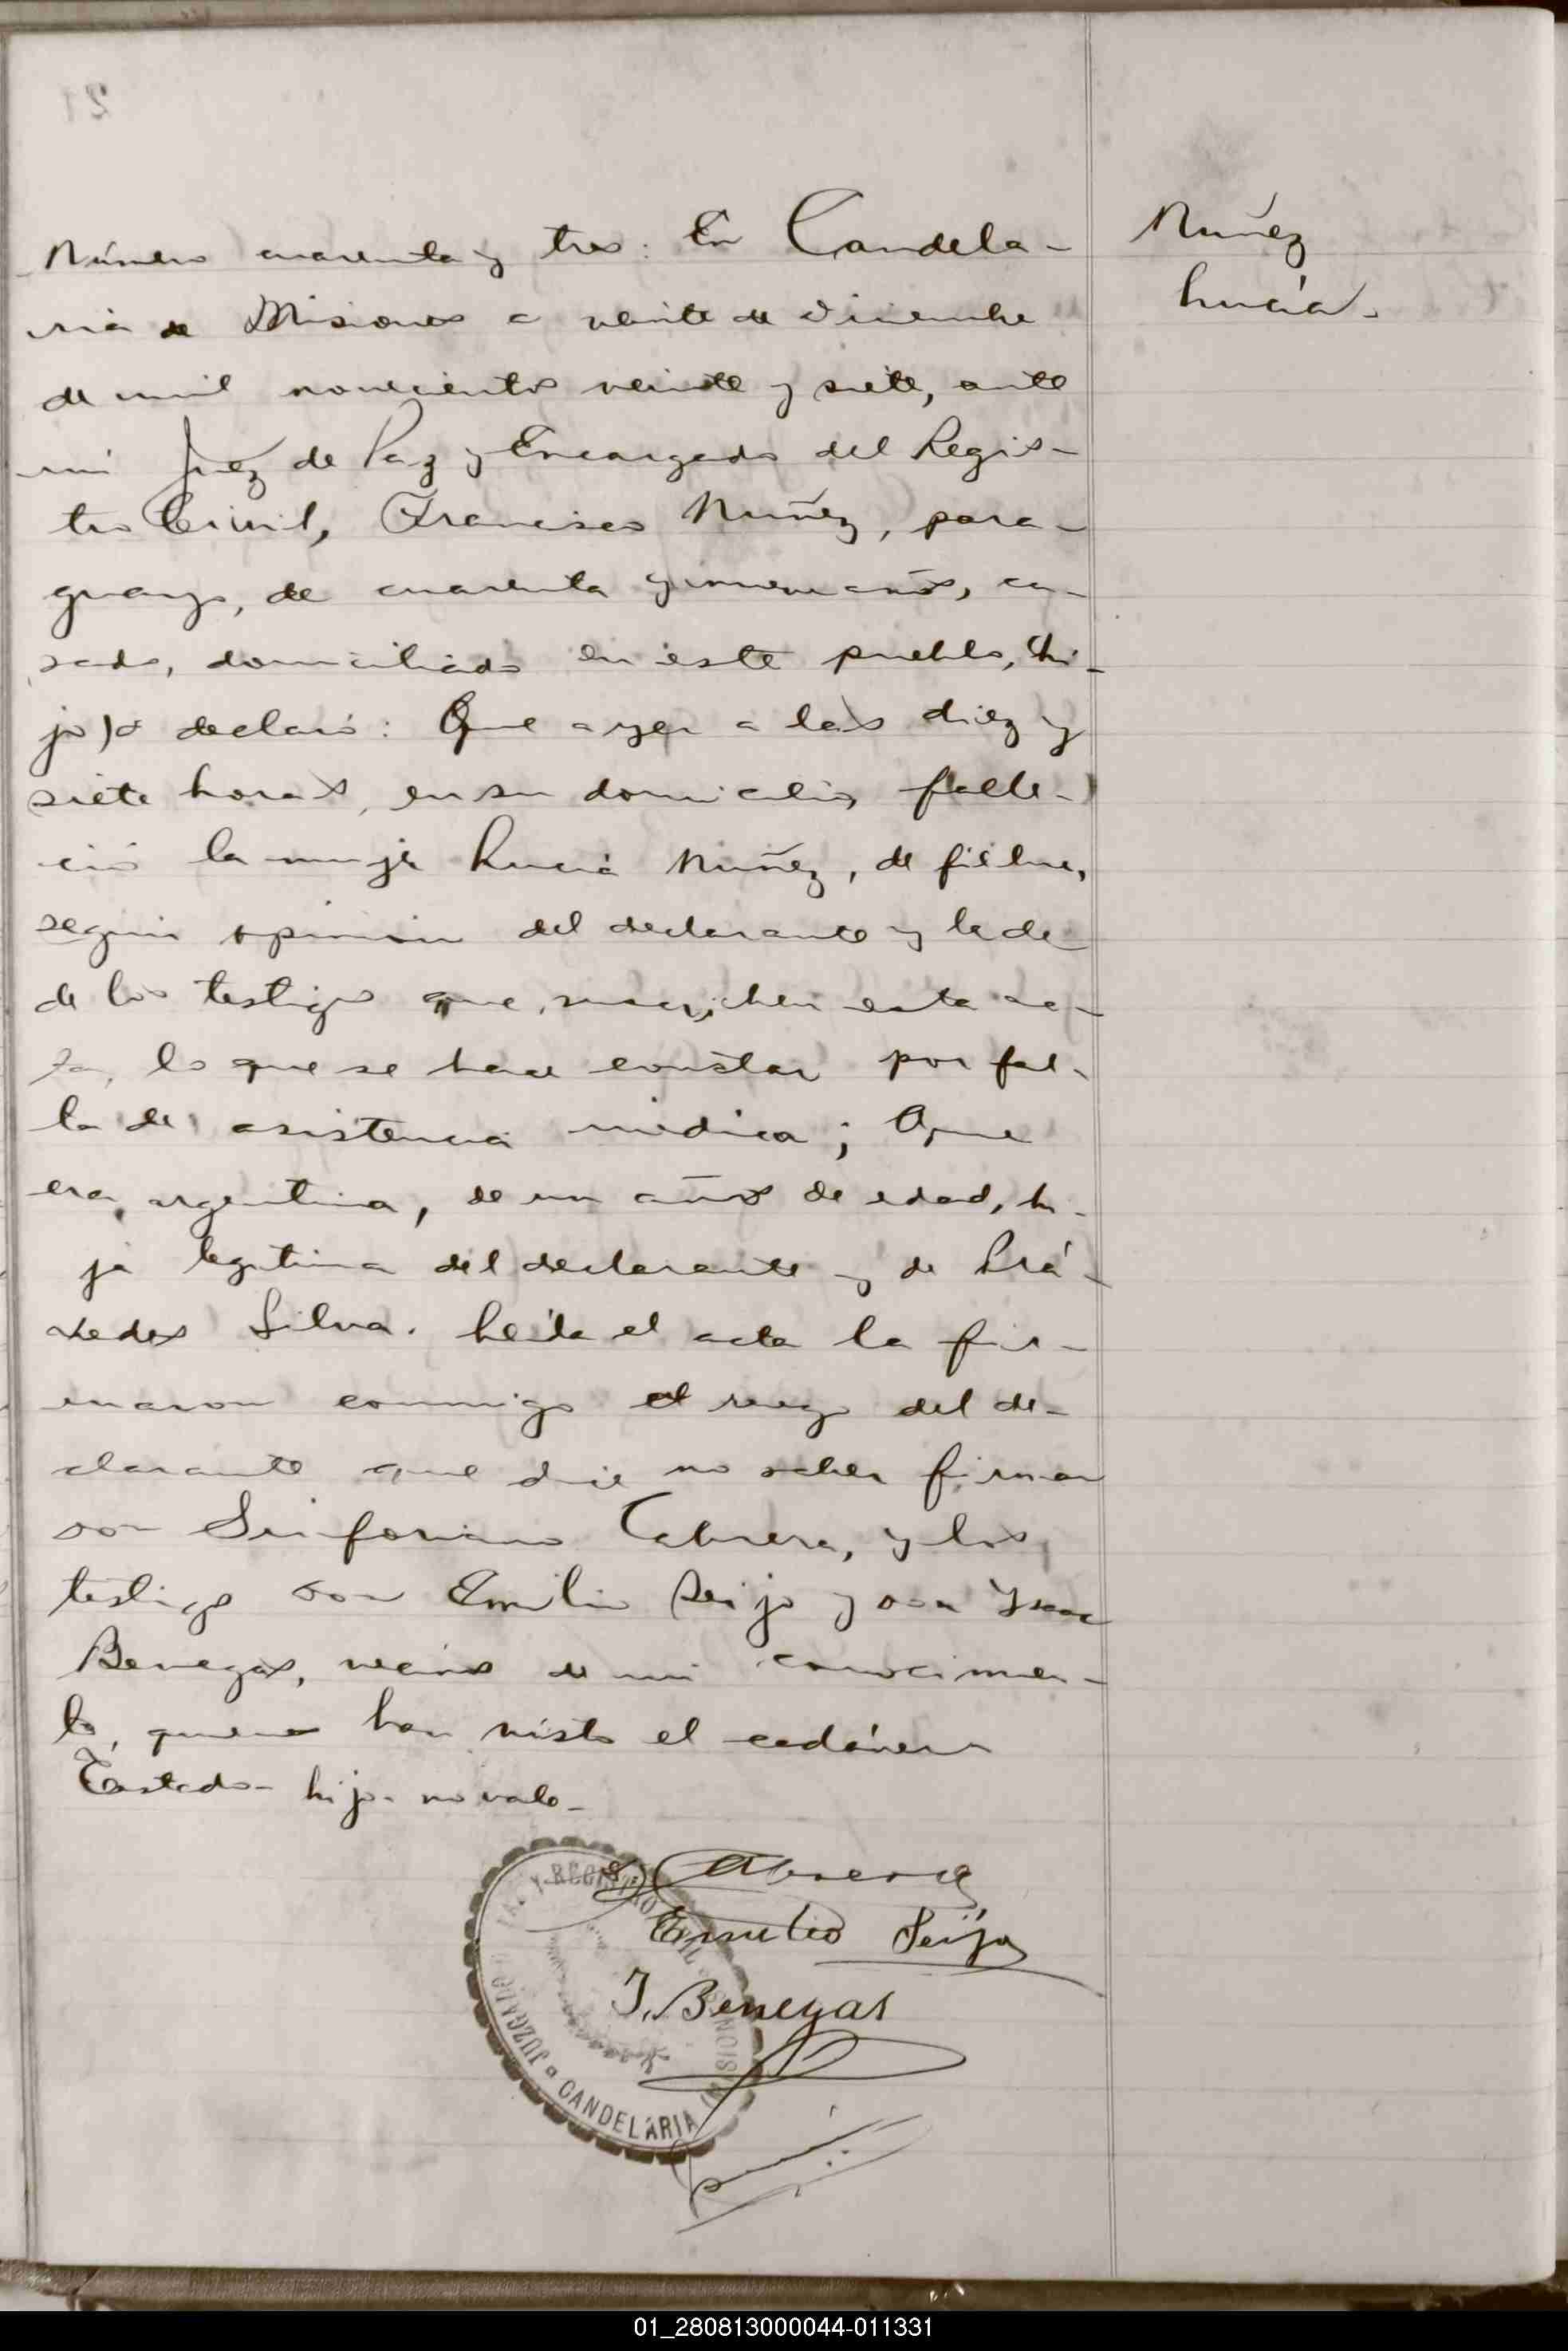 Nuñez
Lucía.
Número cuarenta y tres: En Candela-
ria de Misiones a veinte de diciembre
de mil novecientos veinte y siete, ante
mi Juez de Paz y Encargado del Regis-
tro Civil, Francisco Nuñez, para-
guayo, de cuarenta y nueve años, ca-
sado, domiciliado en este pueblo, (hi-
jo) declaró: Que ayer a las diez y
siete horas, en su domicilio, falle-
ció la mujer Lucía Nuñez, de fiebre,
según opinión del declarante y la de
de los testigos que suscriben esta ac-
ta, lo que se hace constar por fal-
ta de asistencia médica; Que
era argentina, de un años de edad, hi-
ja legítima del declarante y de Prá-
xedes Silva. Leída el acta la fir-
maron conmigo al ruego del de-
clarante que dice no saber firmar
don Sinforiano Cabrera, y los
testigos don Emilio Seijo y don Ysaac
Benegas, vecinos de mi conocimien-
to, quienes han visto el cadáver
Tastado- hijo- no vale-
S Cabrera
Emilio Seijo
J. Benegas
JUZGADO Y REGISTRO CANDELARIA
01_280813000044-011331